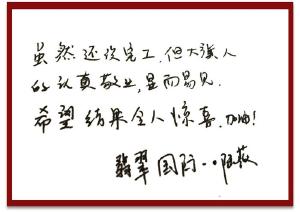 虽然还没完工,但大漢人
的认真敬业,显而易见.
希望结果令人惊喜,加油!
翡翠国际··陈薇